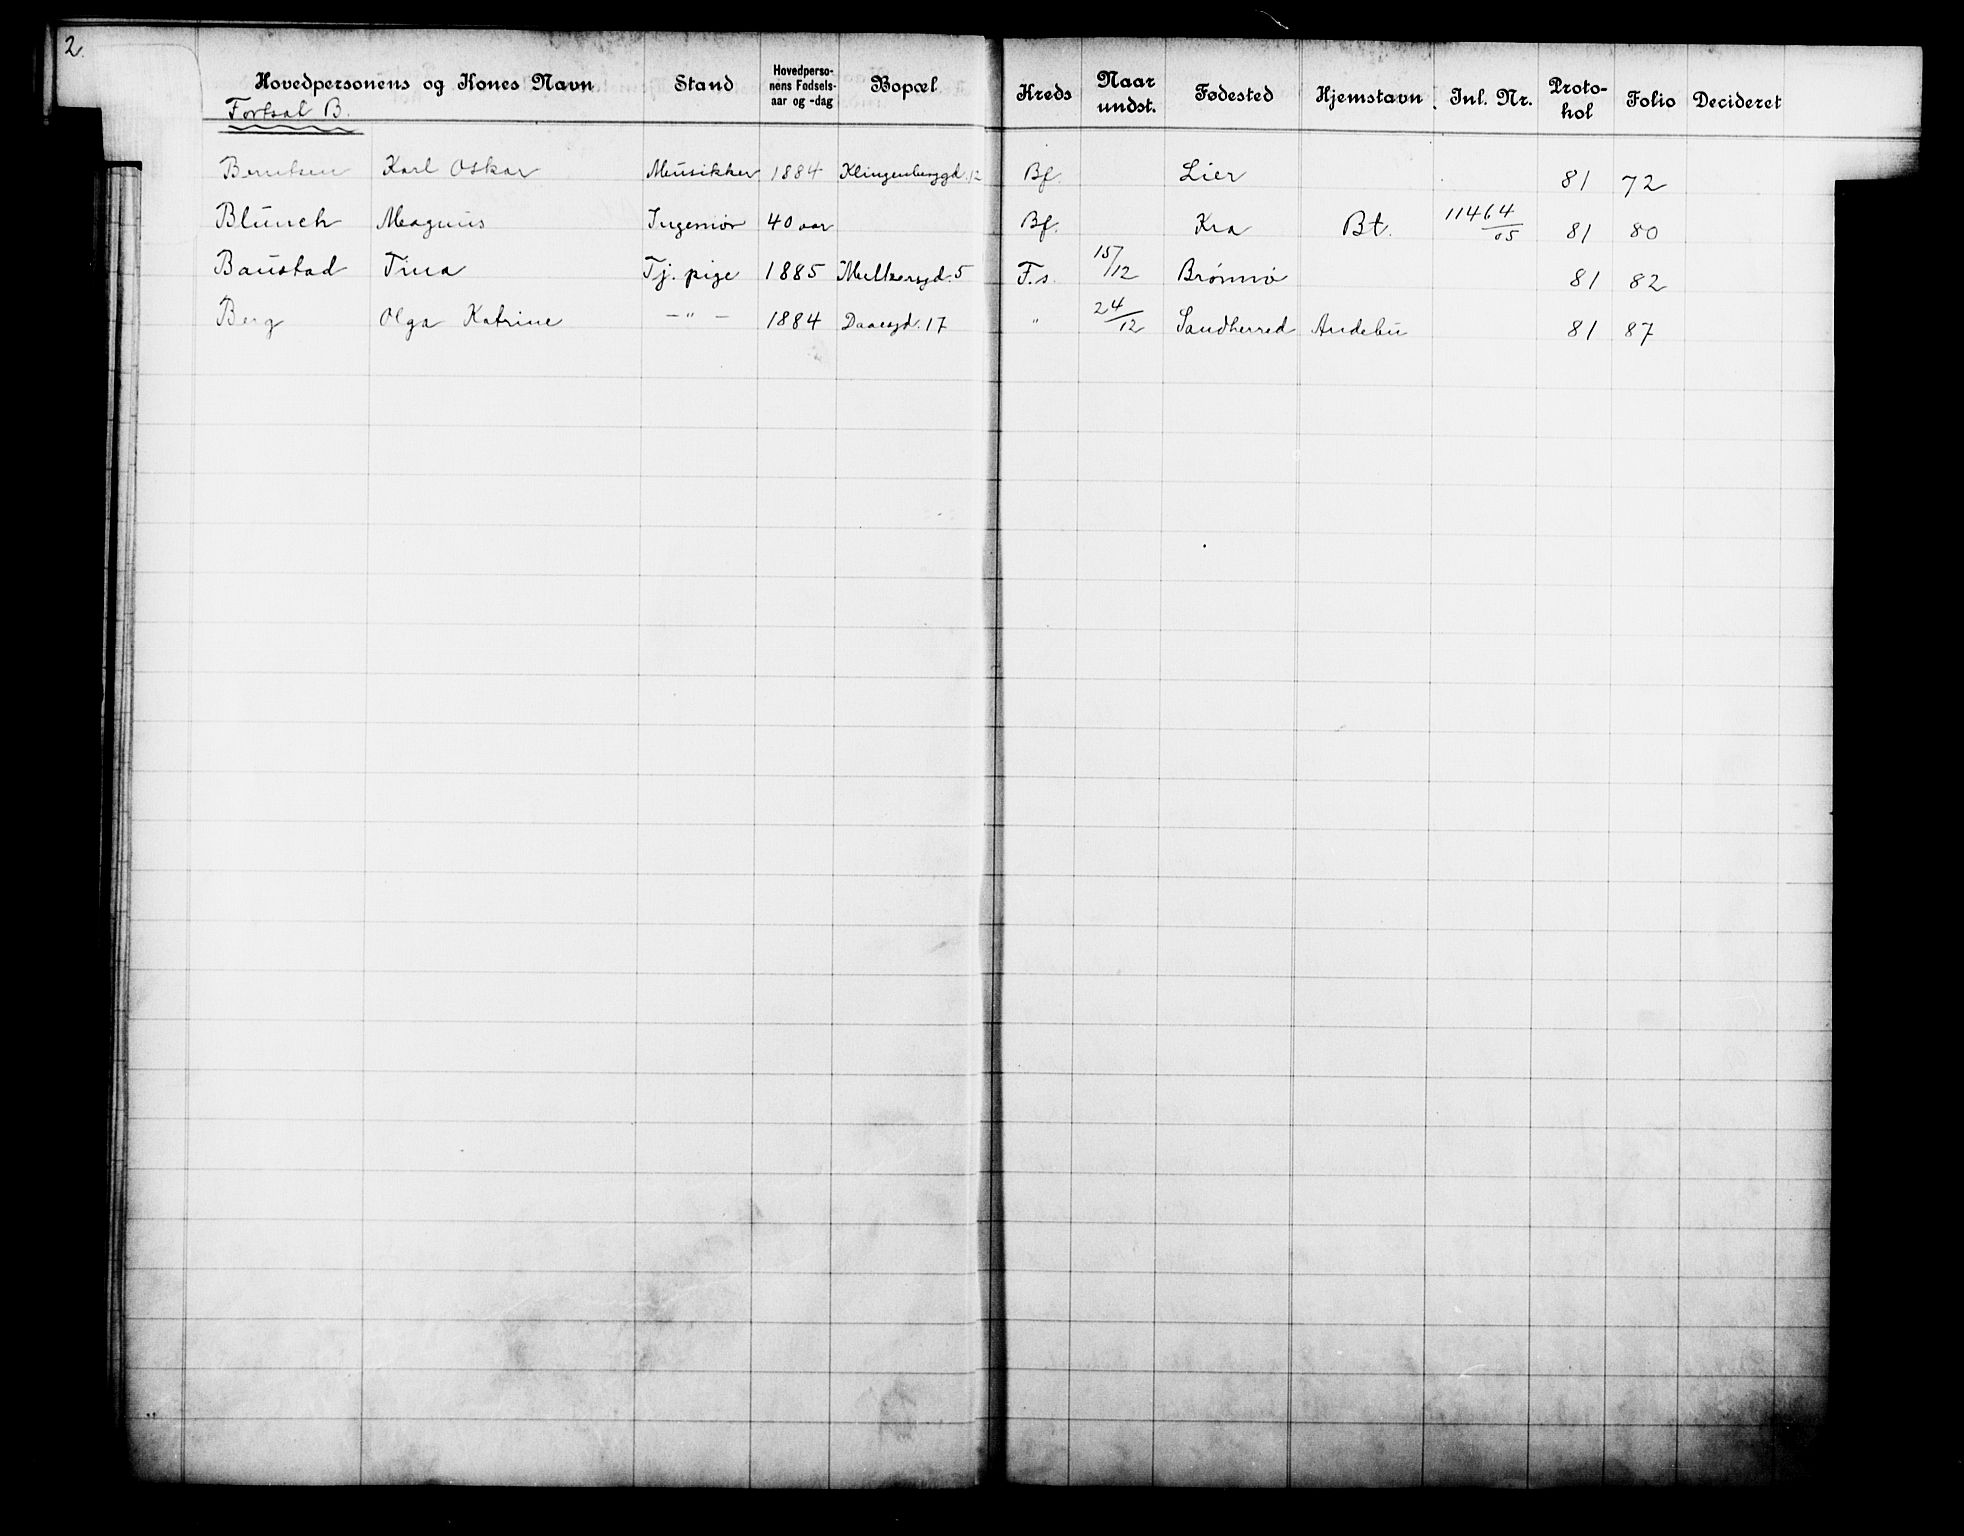 2.
Hovedpersonens og Kones Navn Stand Hovedperso-nens Fødsels-aar og -dag Bopæl Kreds Naar undst. Fødested Hjemstavn Inl. Nr. Proto-kol Folio Decideret
Fortsat B.
Berntsen Karl Oskar Musikker 1884 Klingenberggd. 12 Bf. Lier 81 72
Blunch Magnus Ingeniør 40 aar Bf. Kra Bt. 11464/05 81 80
Baustad Tina Tj. pige 1885 Meltzersgd. 5 F.s. 15/12 Brønnø 81 82
Berg Olga Katrine — " — 1884 Daaesgd. 17 " 24/12 Sandherred Andebu 81 87